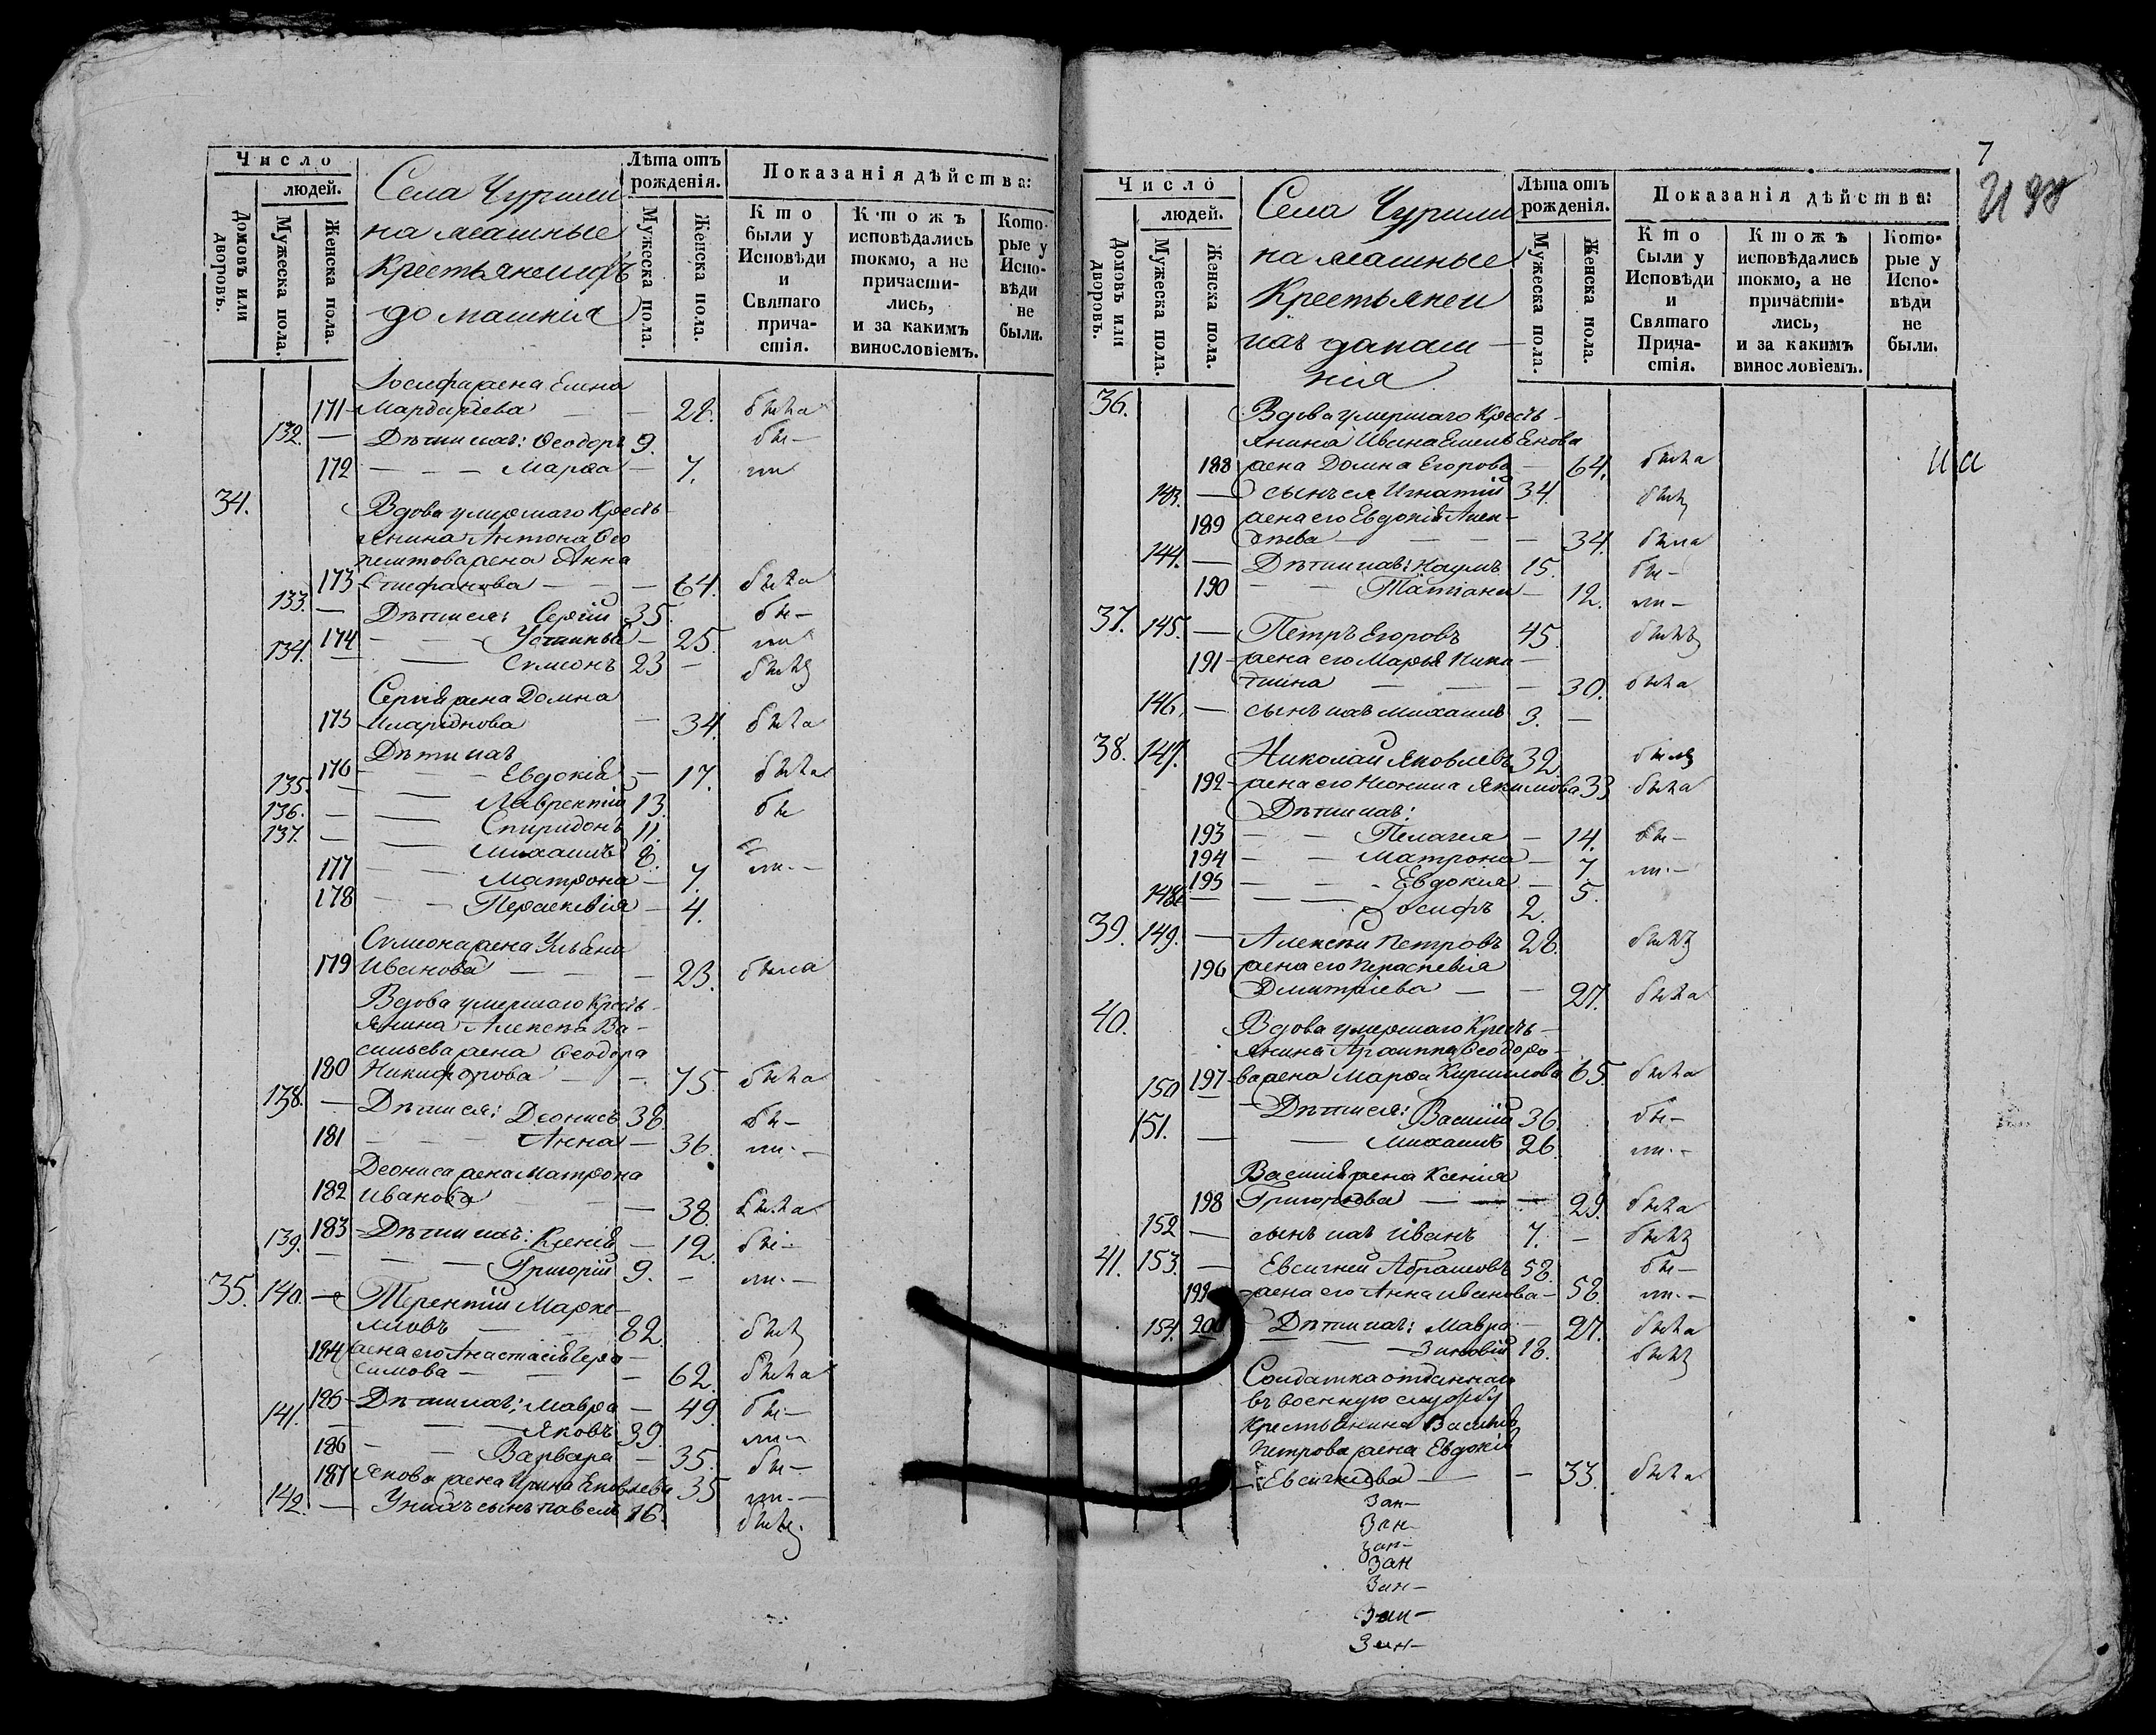 Число
людей.
Домовъ или дворовъ.
Мужеска пола.
Женска пола.
Села Чурили
на
крестьяне
домашнія
Лѣта отъ рожденія.
Мужеска пола.
Женска пола.
Показанія дѣйства:
Кто были у Исповѣди и Святаго причастія.
Ктожъ исповѣдались токмо, а не причастились, и за какимъ винословіемъ.
Которые у Исповѣди не были.
Іосифа жена Елена
171 Мардаріева — 28. была
132. — Дѣти ихъ: Ѳеодоръ 9. бы—
172 — — — Марѳа — 7.
34. Вдова умершаго Кресть-
янина Антона Ѳео
жена Анна
173 Стефанова — — — 64. была
133. — Дѣти ея: Сергій 35. бы—
174 — — Устинья — 25.
134. — — Симеонъ 23 — былъ
Сергія жена Домна
175 Иларіонова — 34. была
Дѣти ихъ
176 — — Евдокія — 17. была
135. — — Лаврентій 13. бы
136. — — Спиридонъ 11.
137. — — Михаилъ 8.
177 — — Матрона — 7.
178 — — Параскевія — 4.
Симеона жена Ульяна
179 Иванова — — — 23. была
Вдова умершаго Кресть-
янина Алексѣя Ва-
сильева жена Ѳеодора
180 Никифорова — — 75. была
138. — Дѣти ея: Деонисъ 38. бы—
181 — — — Анна — 36.
Деониса жена Матрона
182 Иванова — — 38. была
183 Дѣти ихъ: Ксенія — 12. бы—
139. — — — Григорій 9. —
35. 140. — Терентій
82. былъ
184 жена его Анастасія Гера-
симова — — — 62. была
185 Дѣти ихъ: Мавра — 49. бы—
141. — — Яковъ 39.
186 — — Варвара — 35. бы—
187 Якова жена Ирина Яковлева 35
142. — У нихъ сынъ Павелъ 16. былъ
7
Число
людей.
Домовъ или дворовъ.
Мужеска пола.
Женска пола.
Села Чурили
на
Крестьяне
ихъ домаш
нія
Лѣта отъ рожденія.
Мужеска пола.
Женска пола.
Показанія дѣйства:
Кто были у Исповѣди и Святаго Причастія.
Ктожъ исповѣдались токмо, а не причастились, и за какимъ винословіемъ.
Которые у Исповѣди не были.
36. Вдова умершаго Кресть-
янина Ивана Емельянова
188 жена Домна Егорова — 64. была
143. — сынъ ея Игнатій 34. былъ
189 жена его Евдокія Алек-
сѣева — — — 34. была
144. — Дѣти ихъ: Наумъ 15. бы—
190 — — Татіана — 12.
37. 145. — Петръ Егоровъ 45. былъ
191 жена его Марья Ники-
тина — — — 30. была
146. — сынъ ихъ Михаилъ 3. —
38. 147. Николай Яковлевъ 32. былъ
192 жена его Неонила Якимова 33 была
Дѣти ихъ:
193 — — Пелагея — 14. бы—
194 — — Матрона — 7
195 — — Евдокия — 5.
148. — — — Іосифъ 2.
39. 149. — Алексѣй Петровъ 28. былъ
196 жена его Параскевія
Дмитріева — — 27. была
40. Вдова умершаго Кресть-
янина Архиппа Ѳеодоро-
197 ва жена Марѳа Кирилова 65 была
150 — Дѣти ея: Василій 36. бы—
151. — — Михаилъ 26.
Василія жена Ксенія
198 Григорьева — — — 29. была
152 — сынъ ихъ Иванъ 7. — былъ
41. 153. — Евсигней Абрамовъ 58. бы—
199 жена его Анна Иванова — 58.
200 Дѣти ихъ: Мавра — 27. была
154. — Зиновій 18. былъ
Солдатка отданнаго
въ военную службу
Крестьянина Василія
Петрова жена Евдокія
Евсигнѣева — — 33. была
Зан—
Зан—
Зан—
Зан
Зан—
Зан—
Зан—